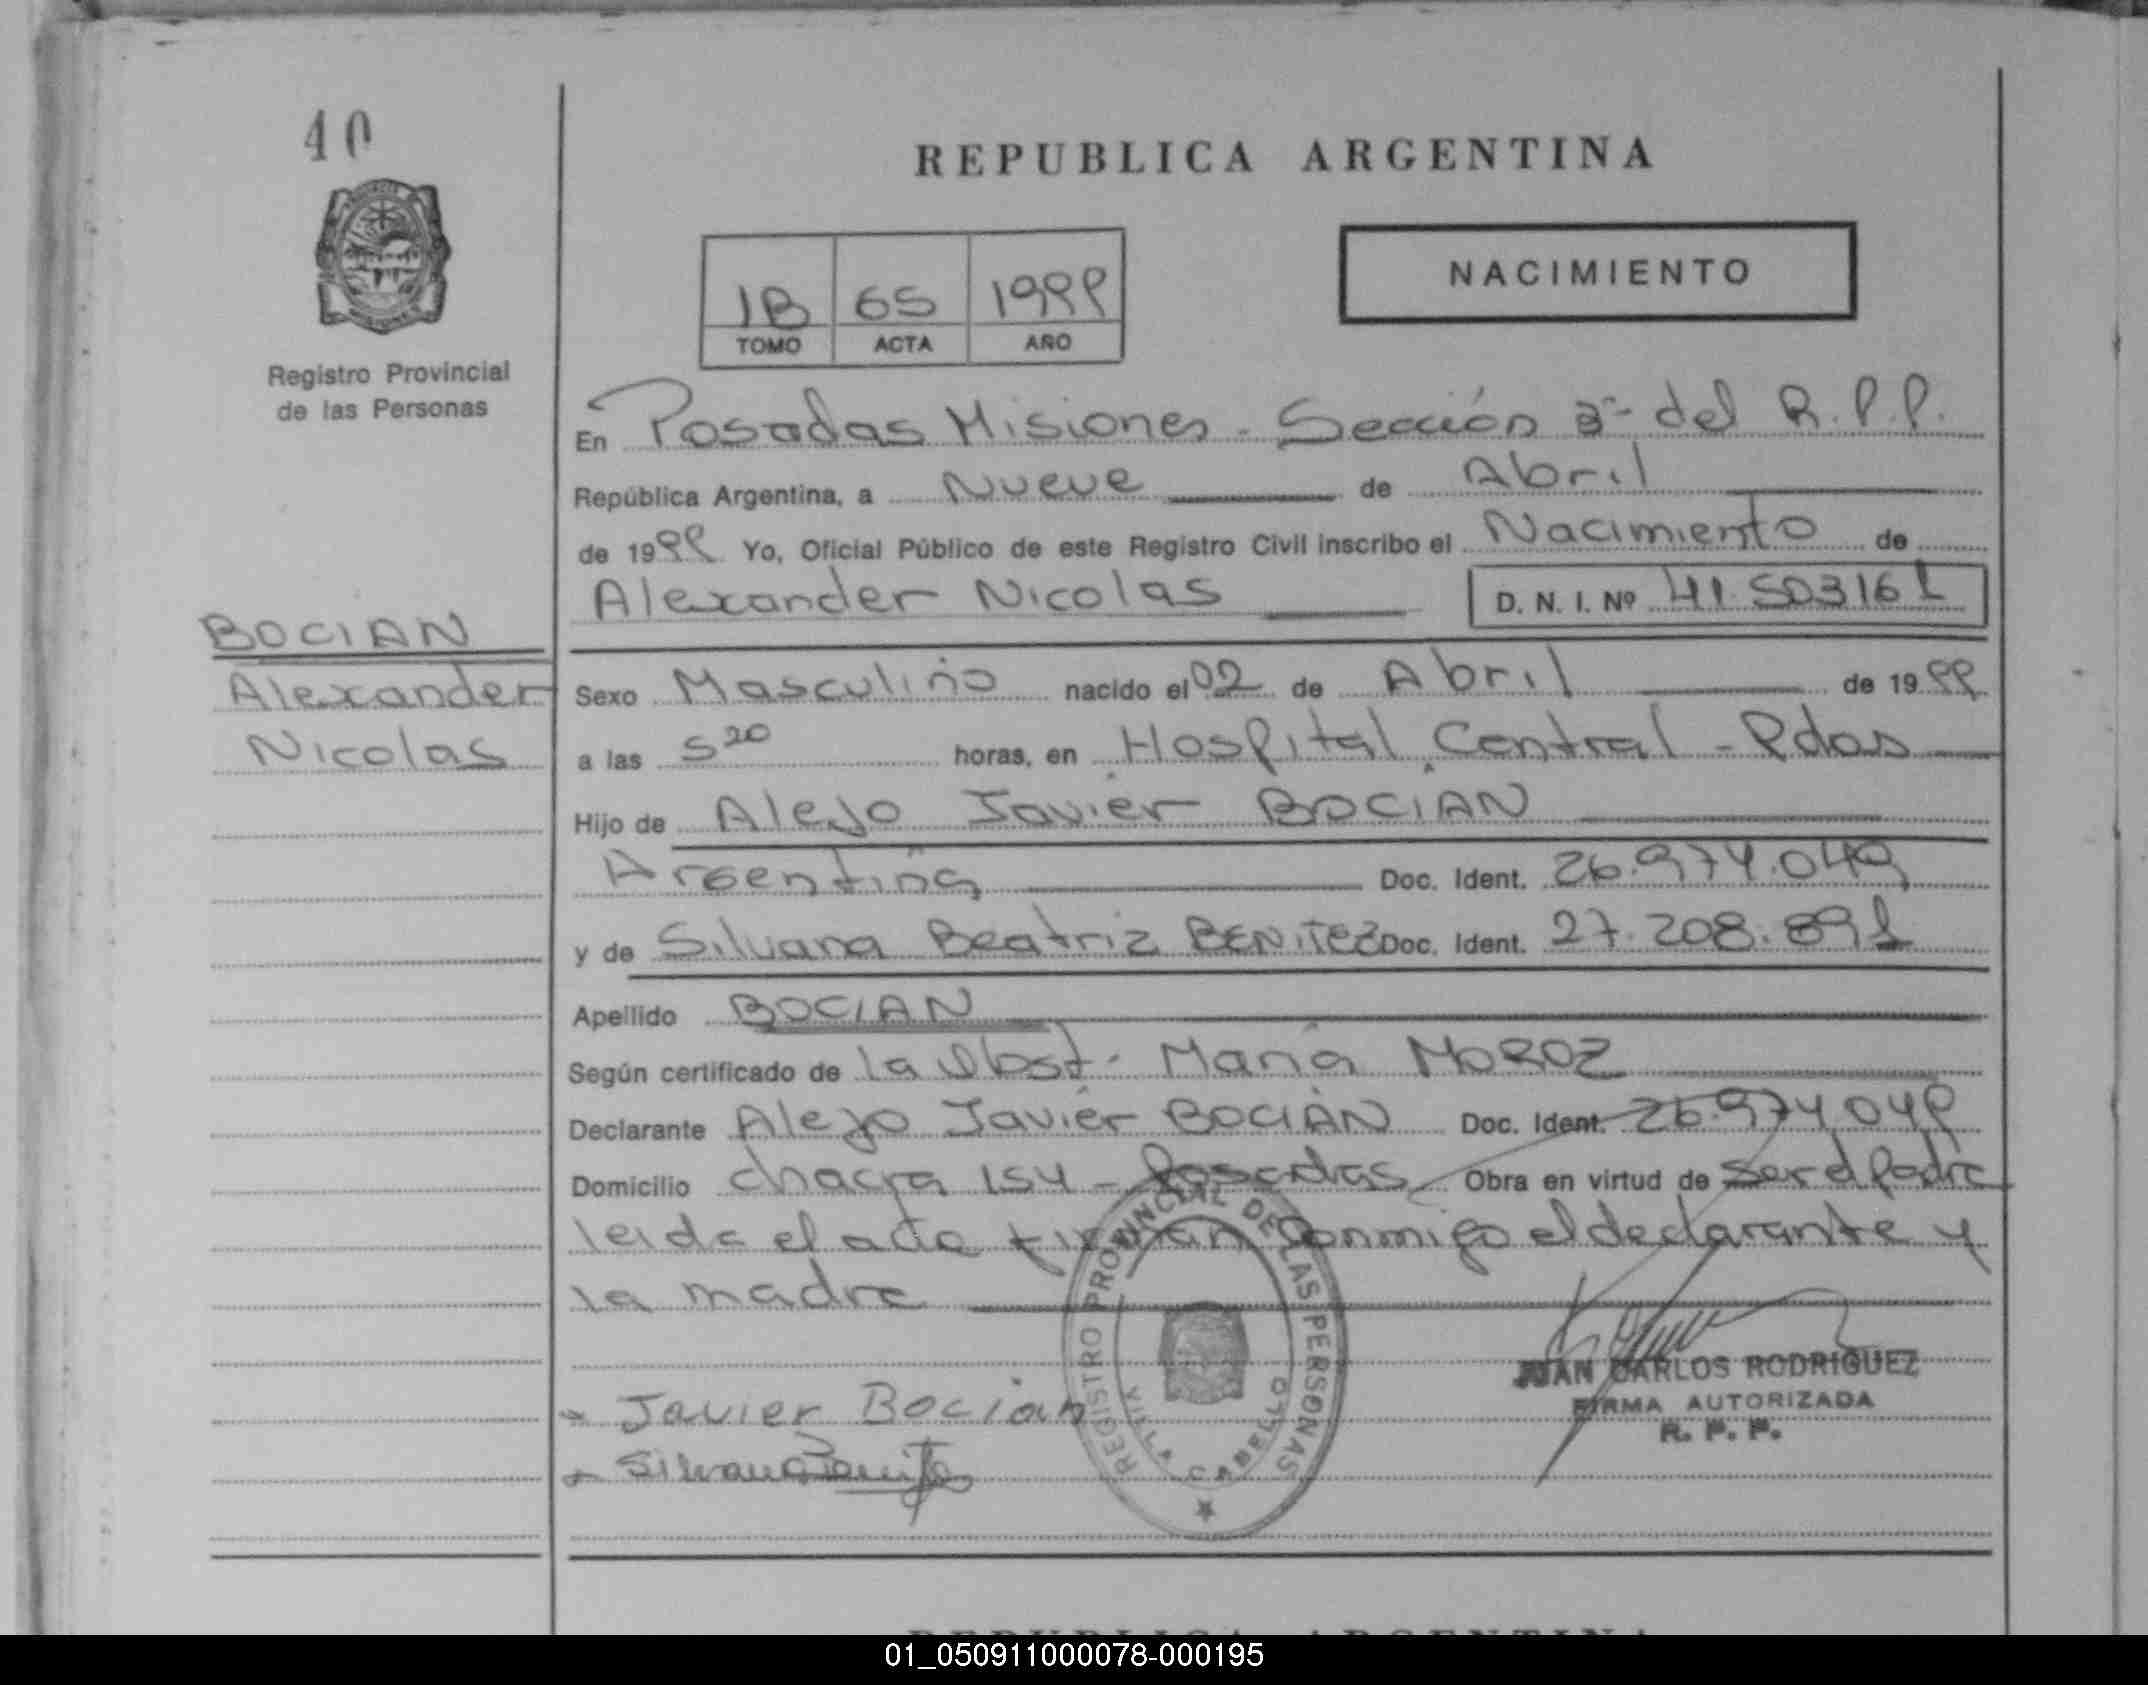 40
REPUBLICA ARGENTINA
NACIMIENTO
1B 65 1999
TOMO ACTA AÑO
Registro Provincial
de las Personas
En Posadas Misiones - Sección 3ª del R.P.P.
República Argentina, a Nueve de Abril
de 1999 Yo, Oficial Público de este Registro Civil inscribo el Nacimiento de
Alexander Nicolas D. N. I. Nº 41.503161
BOCIAN
Alexander
Nicolas
Sexo Masculino nacido el 02 de Abril de 1999
a las 5 20 horas, en Hospital Central - Pdas
Hijo de Alejo Javier BOCIAN
Argentina Doc. Ident. 26.974.049
y de Silvana Beatriz BENITEZ Doc. Ident. 27.208.891
Apellido BOCIAN
Según certificado de la Obst. María MOROZ
Declarante Alejo Javier BOCIAN Doc. Ident. 26.974.049
Domicilio chacra 154 - Posadas Obra en virtud de ser el Padre
leida el acta firman conmigo el declarante y
la madre
REGISTRO PROVINCIAL DE LAS PERSONAS
VILLA CABELLO
JUAN CARLOS RODRIGUEZ
FIRMA AUTORIZADA
R. P. P.
Javier Bocian
Silvana Benitez
REPUBLICA ARGENTINA
01_050911000078-000195